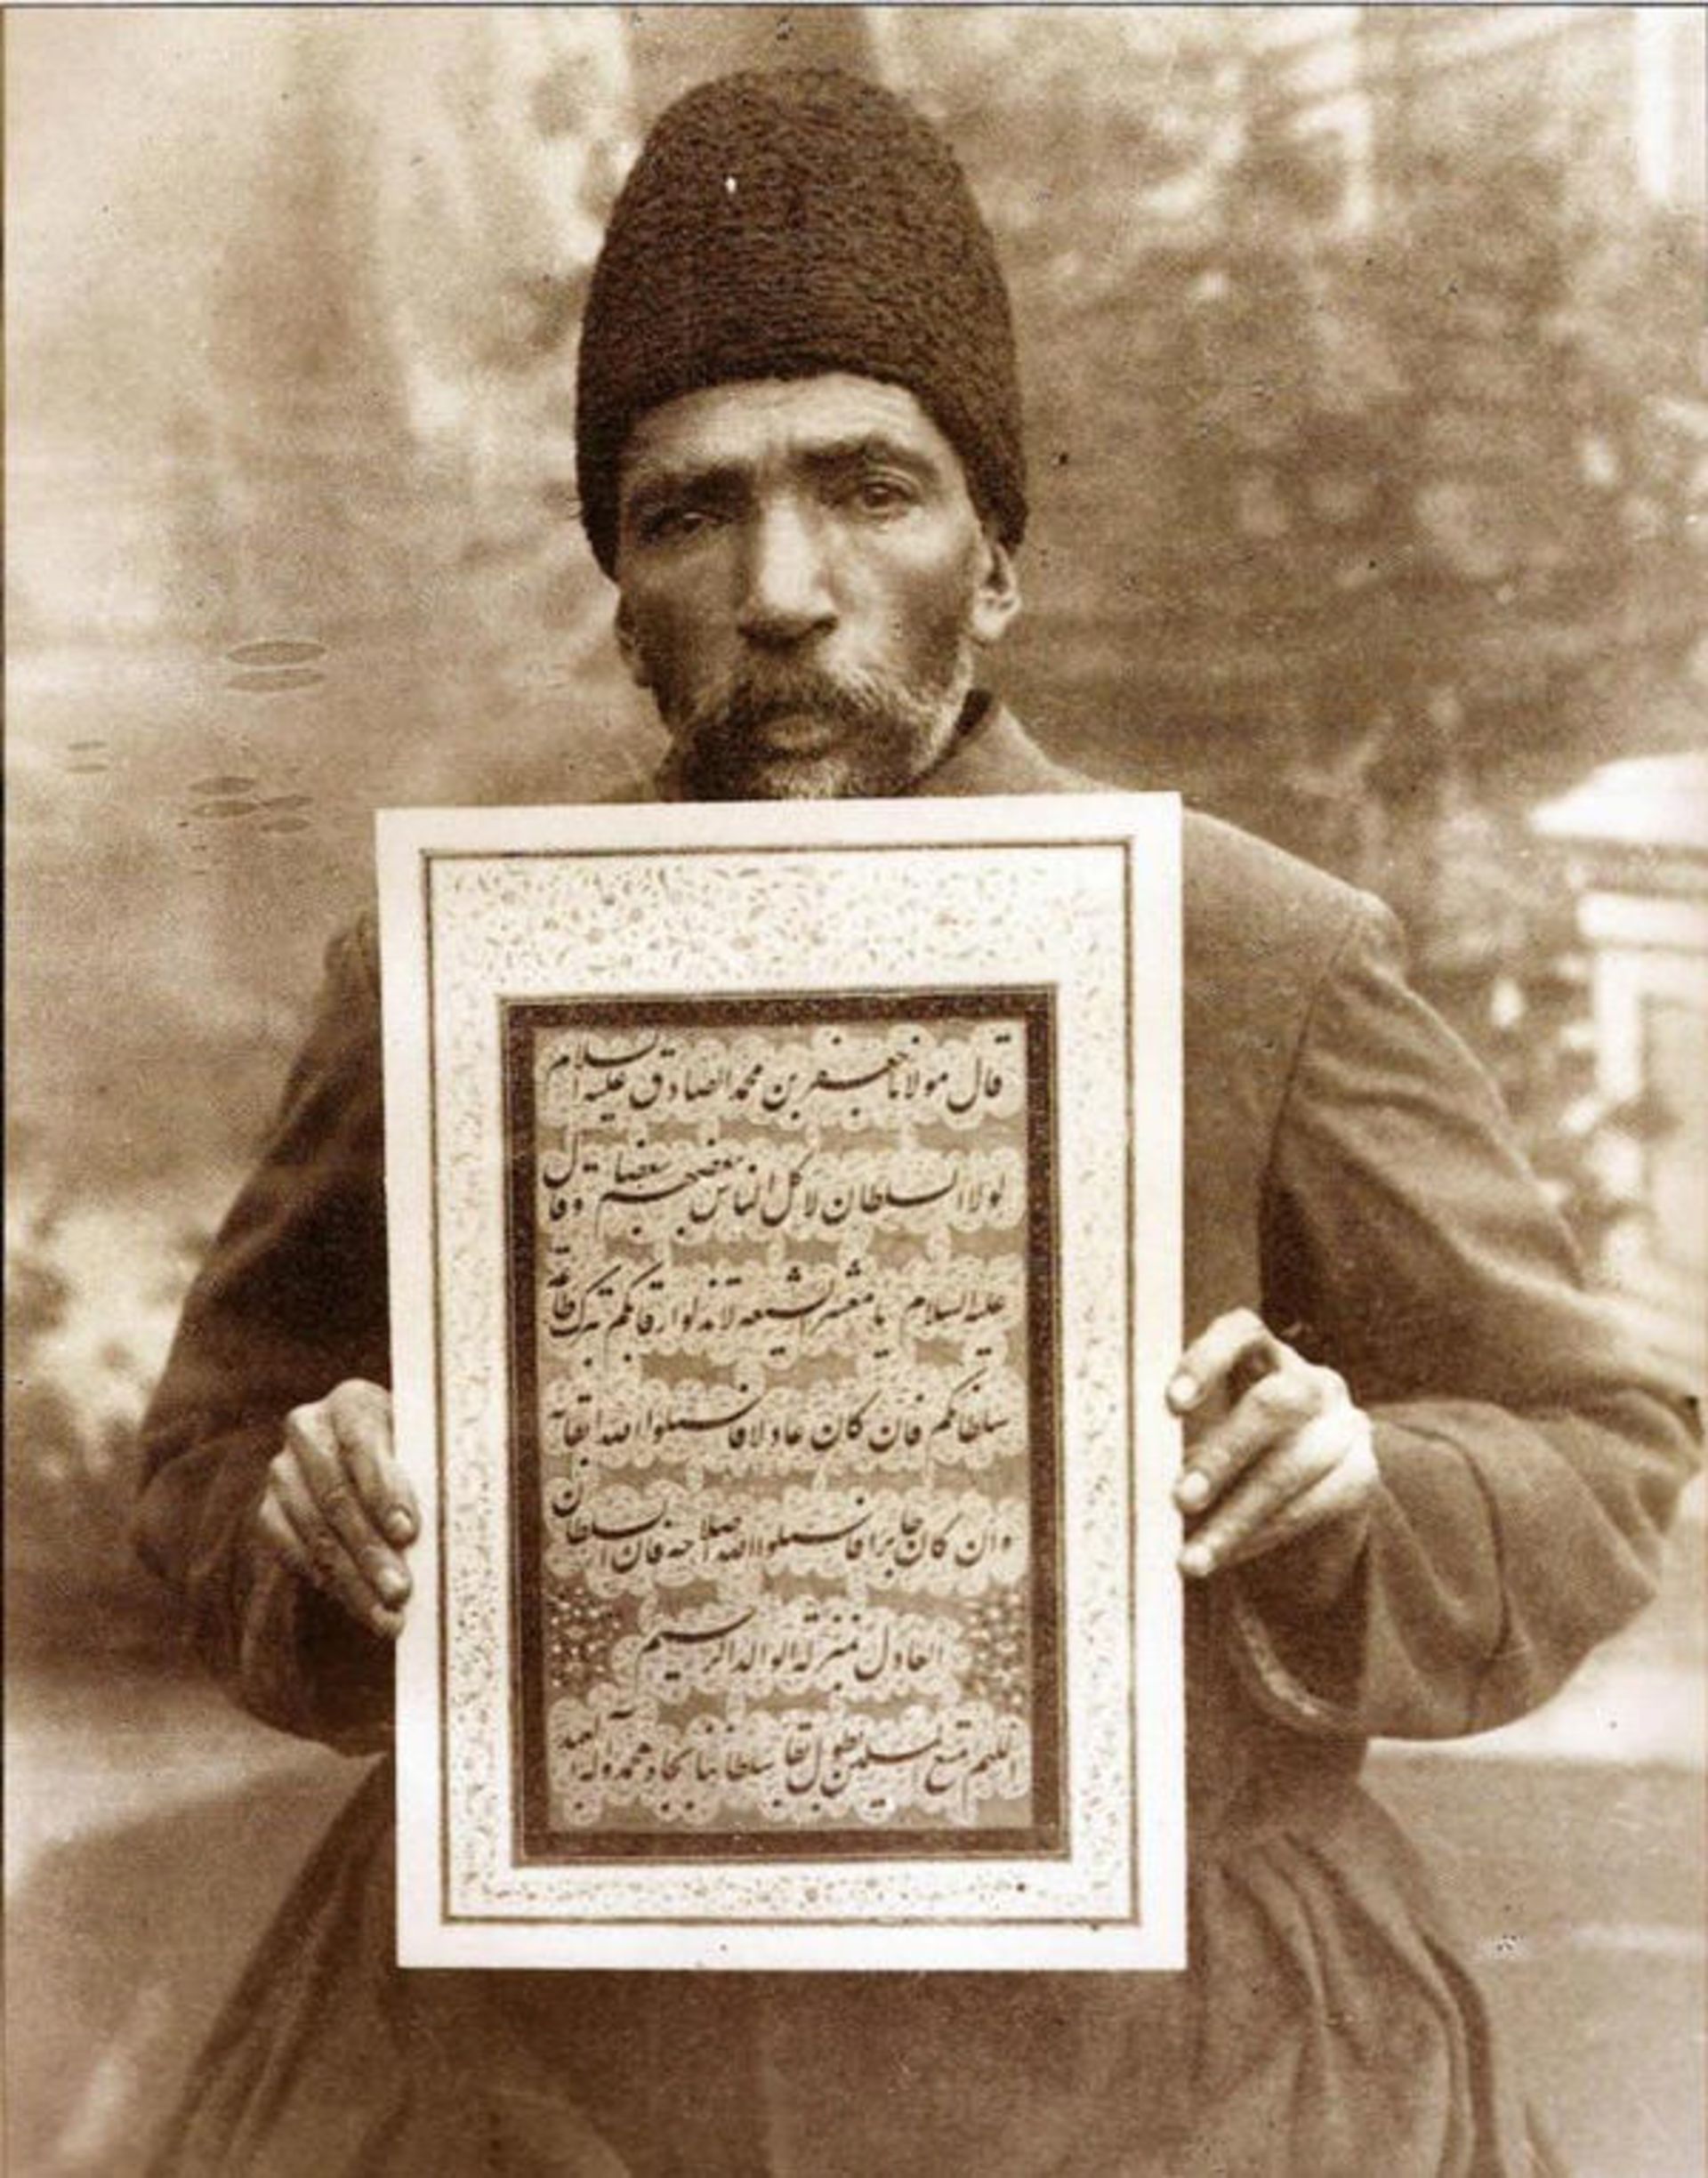 قال مولانا جعفر بن محمد الصادق علیه السلام
لولا السلطان لاکل الناس بعضهم بعضا وقال
علیه السلام یا معشر الشیعه لا تذلوا رقابکم بترک طاعة
سلطانکم فان کان عادلا فاسئلوا الله ابقائه
وان کان جایرا فاسئلوا الله اصلاحه فان السلطان
العادل بمنزلة الوالد الرحیم
اللهم متع المسلمین بطول بقاء سلطاننا بجاه محمد وآله